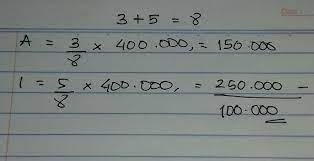 3 + 5 = 8
A = 3/8 × 400.000, = 150.000
1 = 5/8 × 400.000, = 250.000 –
100.000